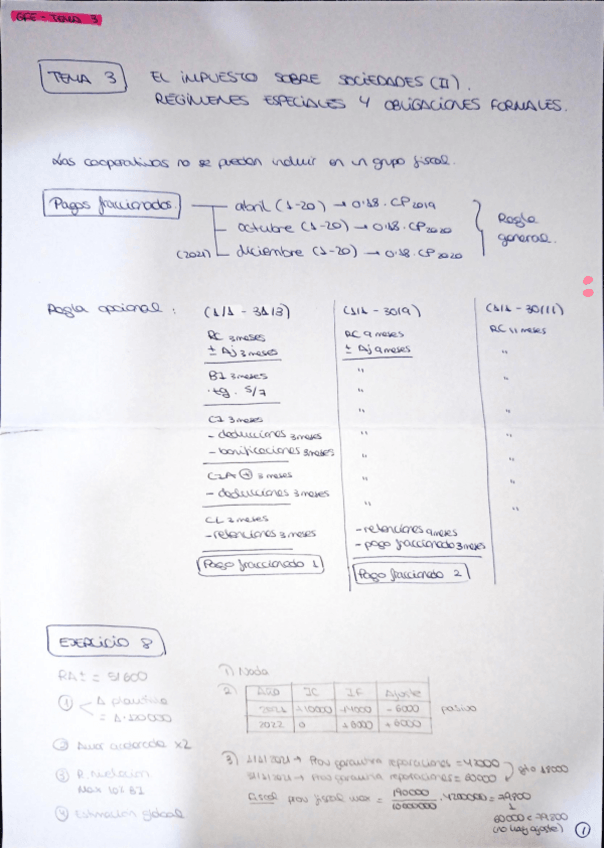 GFE - TEMA 3
TEMA 3
EL IMPUESTO SOBRE SOCIEDADES (II).
REGÍMENES ESPECIALES Y OBLIGACIONES FORMALES.
Las cooperativas no se pueden incluir en un grupo fiscal.
Pagos fraccionados
abril (1-20) → 0'18 · CP2019
octubre (1-20) → 0'18 · CP2020
(2021) diciembre (1-20) → 0'18 · CP2020
Regla general.
Regla opcional : (1/1 - 31/3) (1/1 - 30/9) (1/1 - 30/11)
RC 3 meses RC 9 meses RC 11 meses
± Aj 3 meses ± Aj 9 meses "
BI 3 meses " "
· tg. 5/7 "
CI 3 meses " "
- deducciones 3 meses " "
- bonificaciones 3 meses " "
CIA ⊕ 3 meses " "
- deducciones 3 meses " "
CL 3 meses
- retenciones 3 meses - retenciones 9 meses
- pago fraccionado 3 meses
Pago fraccionado 1 Pago fraccionado 2
EJERCICIO 8
1) Nada
2) Año IC IF Ajuste
2021 - 6000 pasivo
2022 0 +6000 +6000
① Δ plantilla
② Amor acelerada x2
Max 10% BI
④ Estimación global
3) 1/1/2021 → Prov garantía reparaciones = 42000
31/12/2021 → Prov garantía reparaciones = 60000 gto 18000
Fiscal prov fiscal max = 190000 / 10000000 · 4200000 = 79800
60000 < 79800
(no hay ajuste) ①